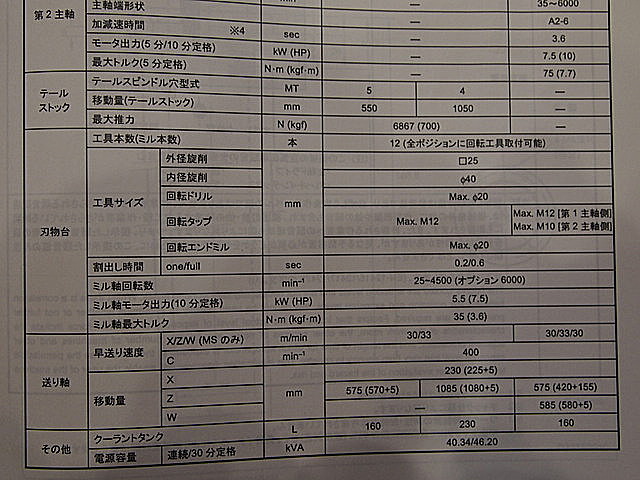 min⁻¹ 35～6000
第2主軸 主軸端形状 — — A2-6
加減速時間 ※4 sec — — 3.6
モータ出力(5分/10分定格) kW (HP) — — 7.5 (10)
最大トルク(5分定格) N·m (kgf·m) — — 75 (7.7)
テールストック テールスピンドル穴型式 MT 5 4 —
移動量(テールストック) mm 550 1050 —
最大推力 N (kgf) 6867 (700) —
刃物台 工具本数(ミル本数) 本 12 (全ポジションに回転工具取付可能)
工具サイズ 外径旋削 mm □25
内径旋削 φ40
回転ドリル Max. φ20
回転タップ Max. M12 Max. M12 [第1主軸側]
Max. M10 [第2主軸側]
回転エンドミル Max. φ20
割出し時間 one/full sec 0.2/0.6
ミル軸回転数 min⁻¹ 25~4500 (オプション 6000)
ミル軸モータ出力(10分定格) kW (HP) 5.5 (7.5)
ミル軸最大トルク N·m (kgf·m) 35 (3.6)
送り軸 早送り速度 X/Z/W (MSのみ) m/min 30/33 30/33/30
C min⁻¹ 400
移動量 X mm 230 (225+5)
Z 575 (570+5) 1085 (1080+5) 575 (420+155)
W — 585 (580+5)
その他 クーラントタンク L 160 230 160
電源容量 連続/30分定格 kVA 40.34/46.20